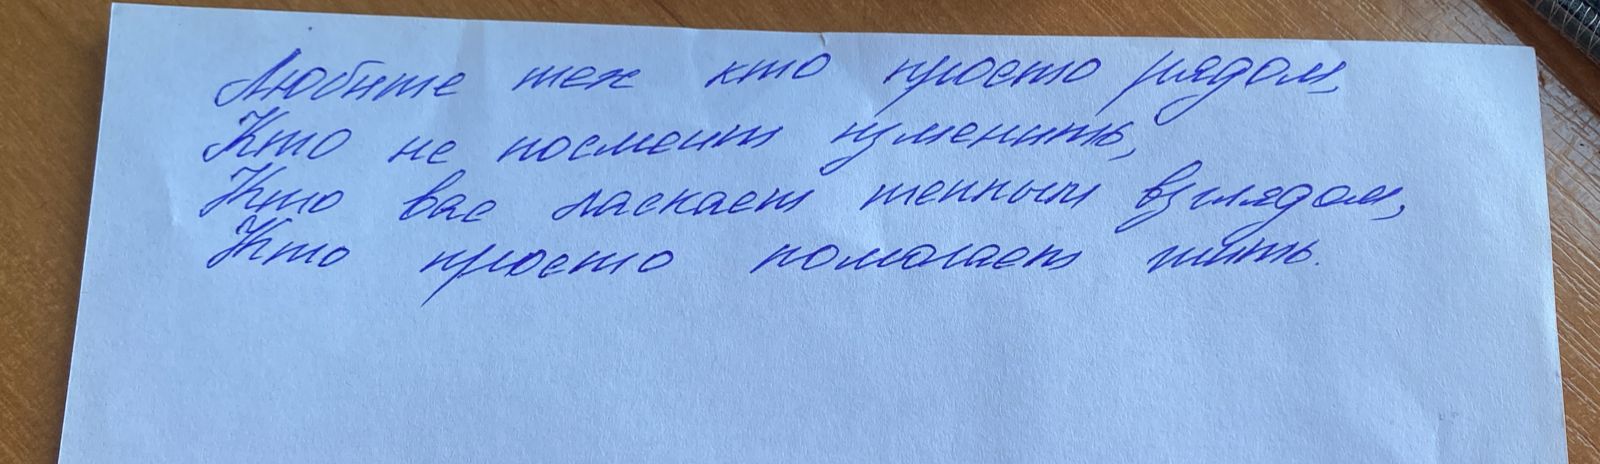 Любите тех кто просто рядом,
Кто не посмеит изменить,
Кто вас ласкает теплым взглядом,
Кто просто помогает жить.